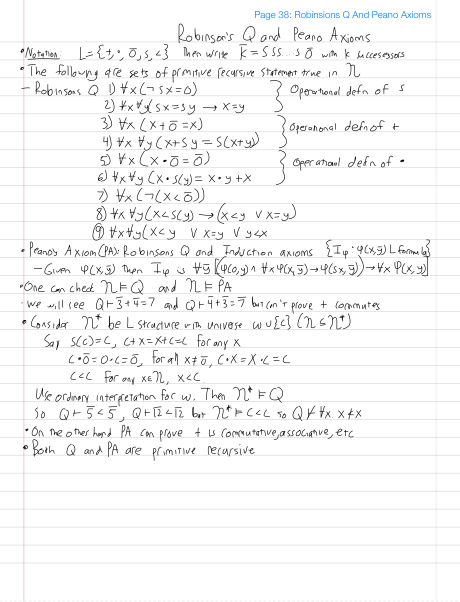 Page 38: Robinsions Q And Peano Axioms
Robinson's Q and Peano Axioms
• Notation: L={+,·,0̄,s,<} Then write k̄ = SSS...S 0̄ with k successors
• The following are sets of primitive recursive statement true in 𝒩
- Robinsons Q 1) ∀x(¬sx=0) } Operational defn of s
2) ∀x∀y(sx=sy → x=y
3) ∀x (x+0̄=x) } Operational defn of +
4) ∀x ∀y(x+sy = s(x+y))
5) ∀x (x·0̄=0̄) } Operational defn of ·
6) ∀x∀y(x·s(y)=x·y+x
7) ∀x(¬(x<0̄))
8) ∀x ∀y(x<s(y) → (x<y ∨ x=y)
9) ∀x∀y(x<y ∨ x=y ∨ y<x
• Peano's Axiom (PA): Robinsons Q and Induction axioms {Iφ : φ(x,ȳ) L formula}
- Given φ(x,ȳ) Then Iφ is ∀ȳ[(φ(0,y) ∧ ∀x φ(x,ȳ)→φ(sx,ȳ))→∀x φ(x,y)]
• One can check 𝒩⊨Q and 𝒩⊨PA
• We will see Q⊢3̄+4̄=7̄ and Q⊢4̄+3̄=7̄ but can't prove + commutes
• Consider 𝒩* be L structure with universe ω∪{c} (𝒩⊆𝒩*)
Say s(c)=c, c+x=x+c=c for any x
c·0̄=0·c=0̄, for all x≠0̄, c·x=x·c=c
c<c for any x∈𝒩, x<c.
Use ordinary interpretation for ω. Then 𝒩*⊨Q
So Q⊬5̄<5̄, Q⊬12<12 but 𝒩*⊨c<c so Q⊬∀x. x≮x
• On the other hand PA can prove + is commutative, associative, etc
• Both Q and PA are primitive recursive